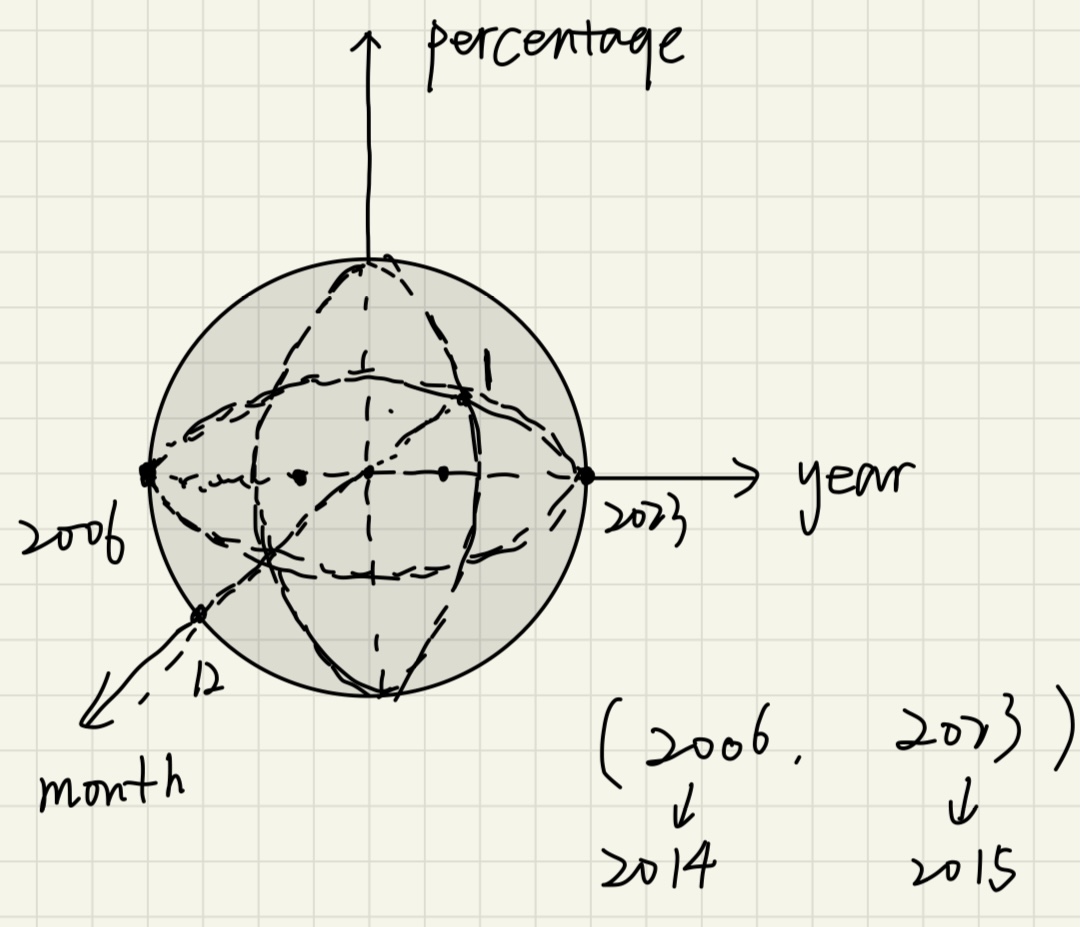 percentage
1
year
2006
2023
12
month
(2006, 2023)
↓ ↓
2014 2015